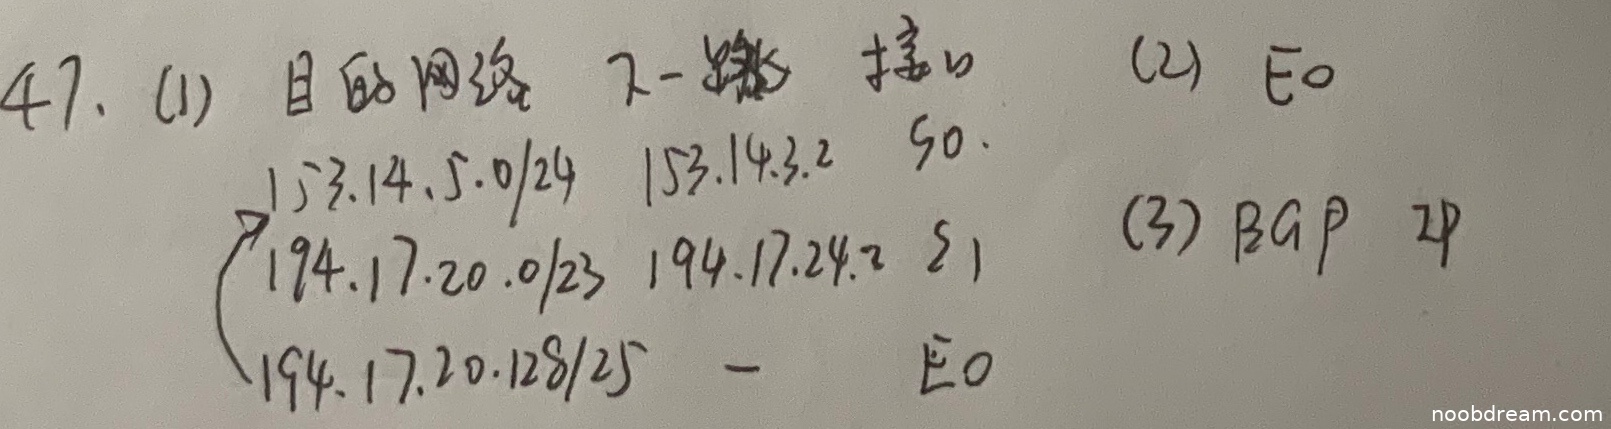 47. (1) 目的网络 下一跳 接口
153.14.5.0/24 153.14.3.2 S0.
194.17.20.0/23 194.17.24.2 S1
194.17.20.128/25 - E0
(2) E0
(3) BGP IP
noobdream.com